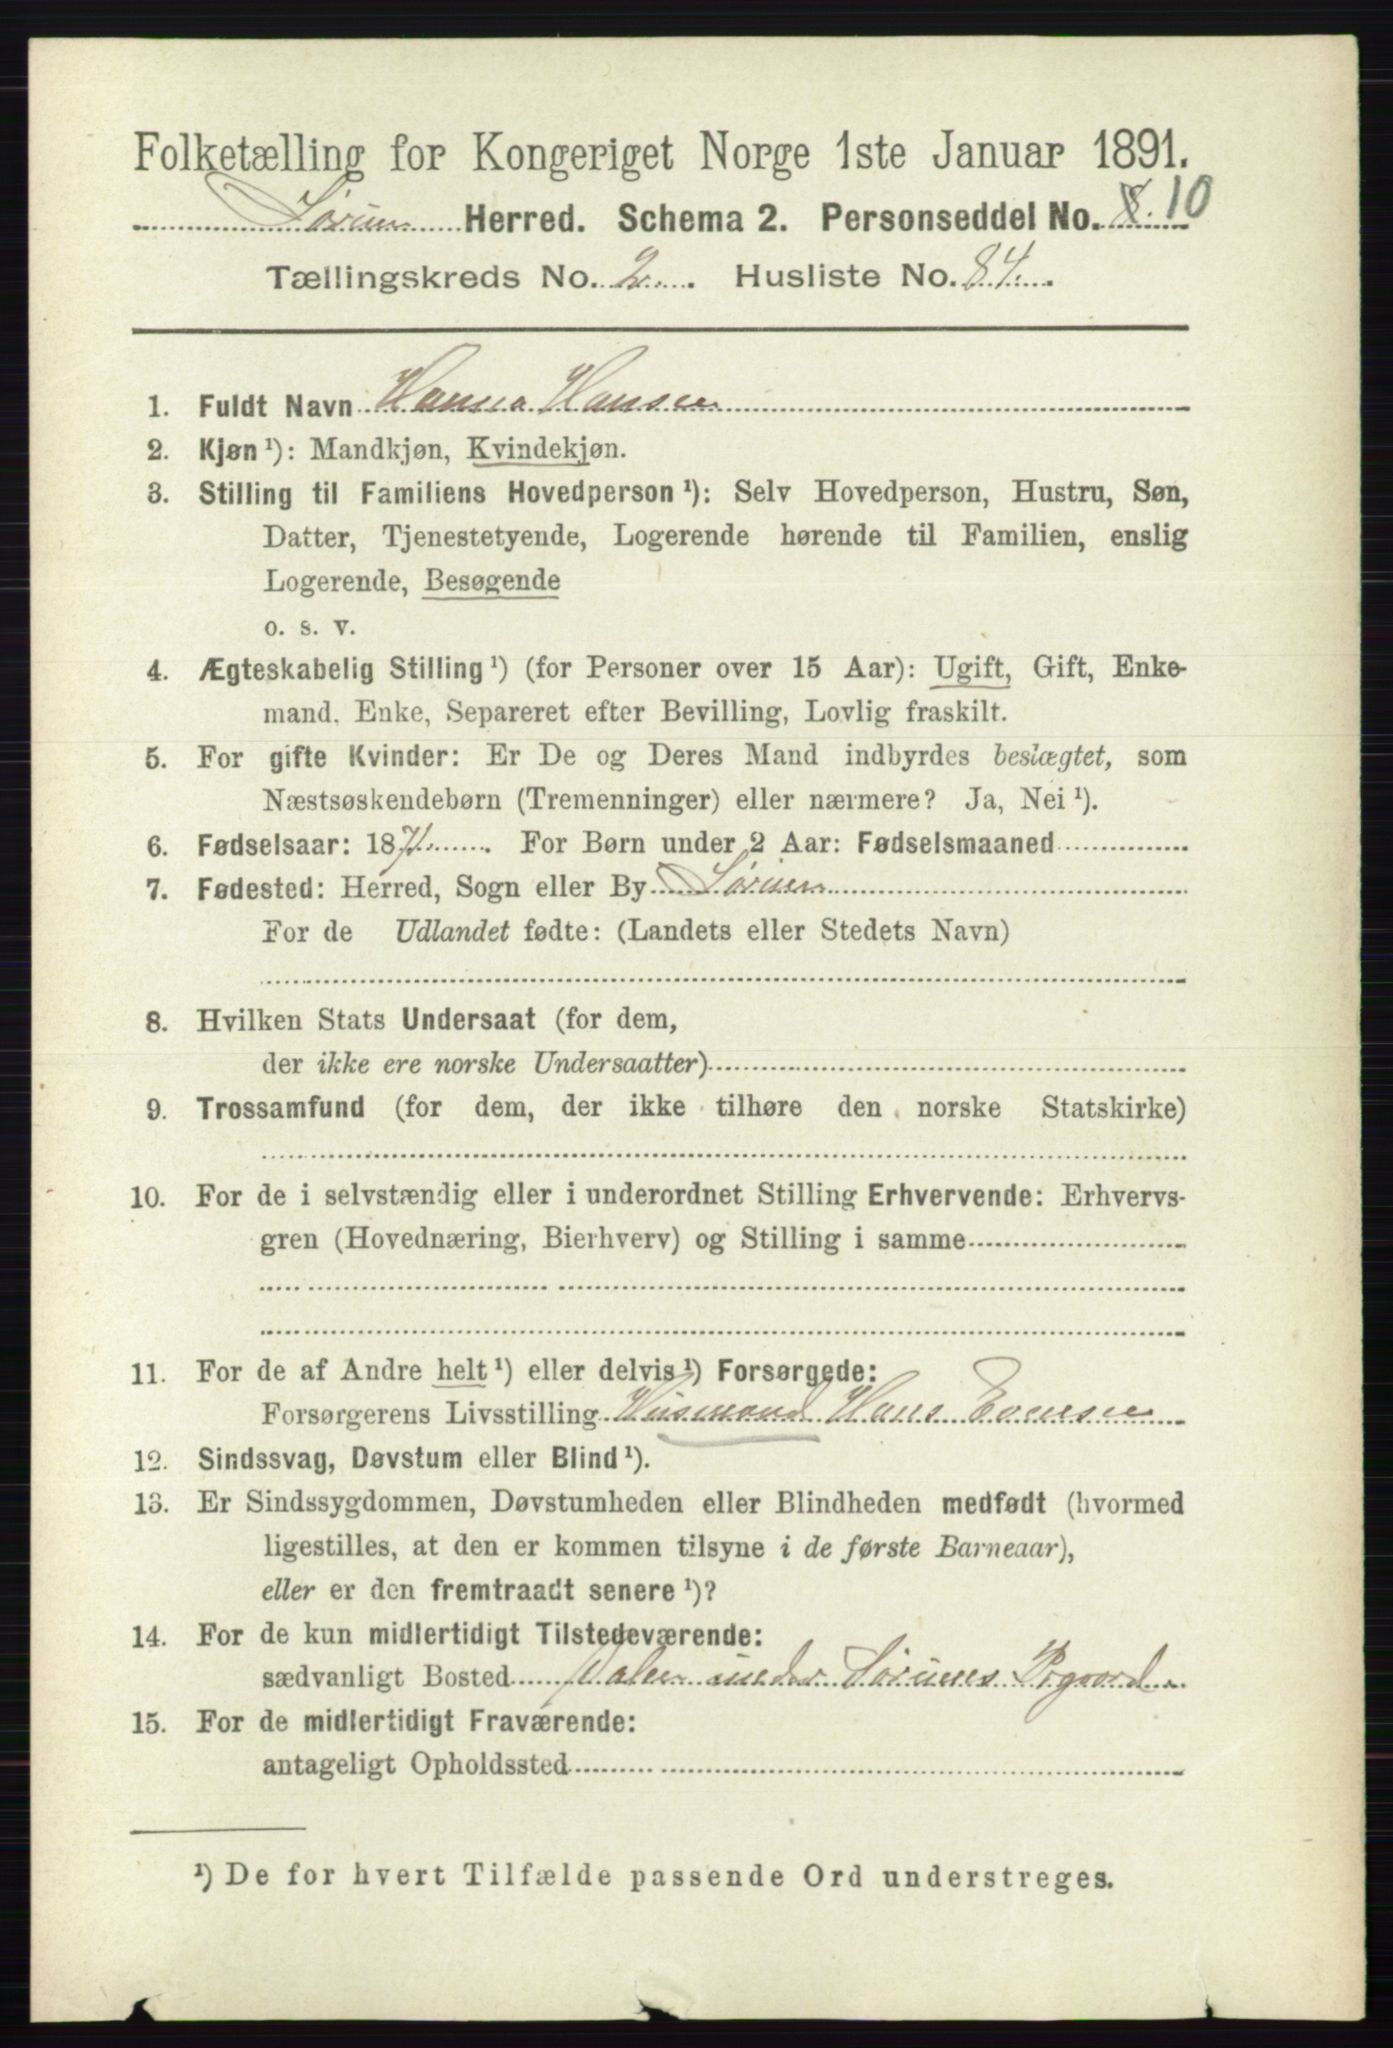 Folketælling for Kongeriget Norge 1ste Januar 1891.
Sørum Herred. Schema 2. Personseddel No. 8. 10
Tællingskreds No. 2. Husliste No. 84.
1. Fuldt Navn Hanna Hansen
2. Kjøn ¹): Mandkjøn, Kvindekjøn.
3. Stilling til Familiens Hovedperson ¹): Selv Hovedperson, Hustru, Søn,
Datter, Tjenestetyende, Logerende hørende til Familien, enslig
Logerende, Besøgende
o. s. v.
4. Ægteskabelig Stilling ¹) (for Personer over 15 Aar): Ugift, Gift, Enke-
mand, Enke, Separeret efter Bevilling, Lovlig fraskilt.
5. For gifte Kvinder: Er De og Deres Mand indbyrdes beslægtet, som
Næstsøskendebørn (Tremenninger) eller nærmere? Ja, Nei ¹).
6. Fødselsaar: 1871. For Børn under 2 Aar: Fødselsmaaned
7. Fødested: Herred, Sogn eller By Sørum
For de Udlandet fødte: (Landets eller Stedets Navn)
8. Hvilken Stats Undersaat (for dem,
der ikke ere norske Undersaatter)
9. Trossamfund (for dem, der ikke tilhøre den norske Statskirke)
10. For de i selvstændig eller i underordnet Stilling Erhvervende: Erhvervs-
gren (Hovednæring, Bierhverv) og Stilling i samme
11. For de af Andre helt ¹) eller delvis ¹) Forsørgede:
Forsørgerens Livsstilling Husmand Hans Evensen
12. Sindssvag, Døvstum eller Blind ¹).
13. Er Sindssygdommen, Døvstumheden eller Blindheden medfødt (hvormed
ligestilles, at den er kommen tilsyne i de første Barneaar),
eller er den fremtraadt senere ¹)?
14. For de kun midlertidigt Tilstedeværende:
sædvanligt Bosted under Sørums
15. For de midlertidigt Fraværende:
antageligt Opholdssted
¹) De for hvert Tilfælde passende Ord understreges.